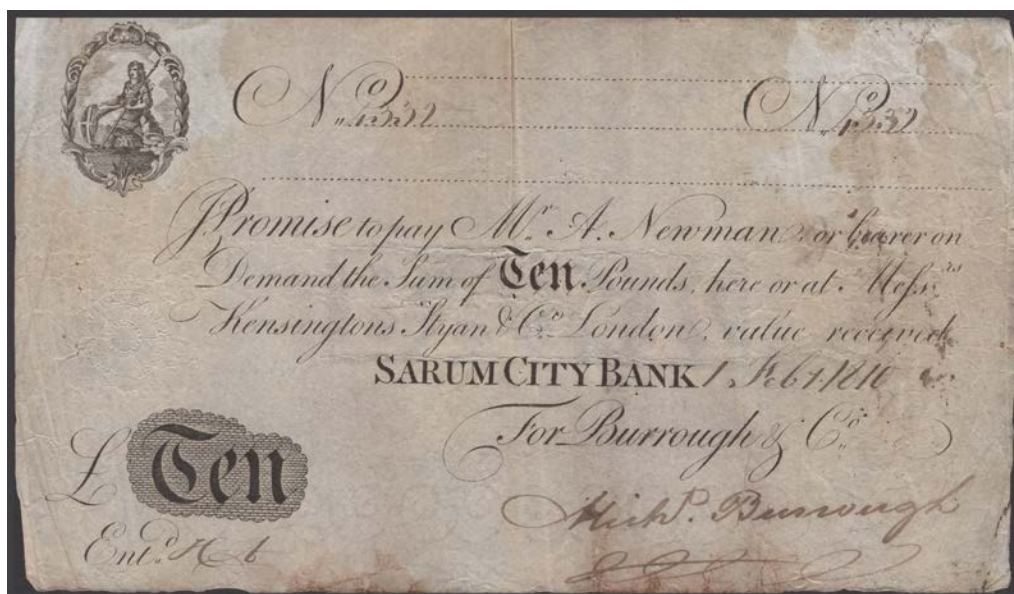 No No
I Promise to pay Mr. A. Newman or bearer on
Demand the Sum of Ten Pounds, here or at Messrs
Kensingtons & Co. London, value received
SARUM CITY BANK 1 Feby 1810
For Burrough & Co.
£ Ten
Michl. Burrough
Entd.